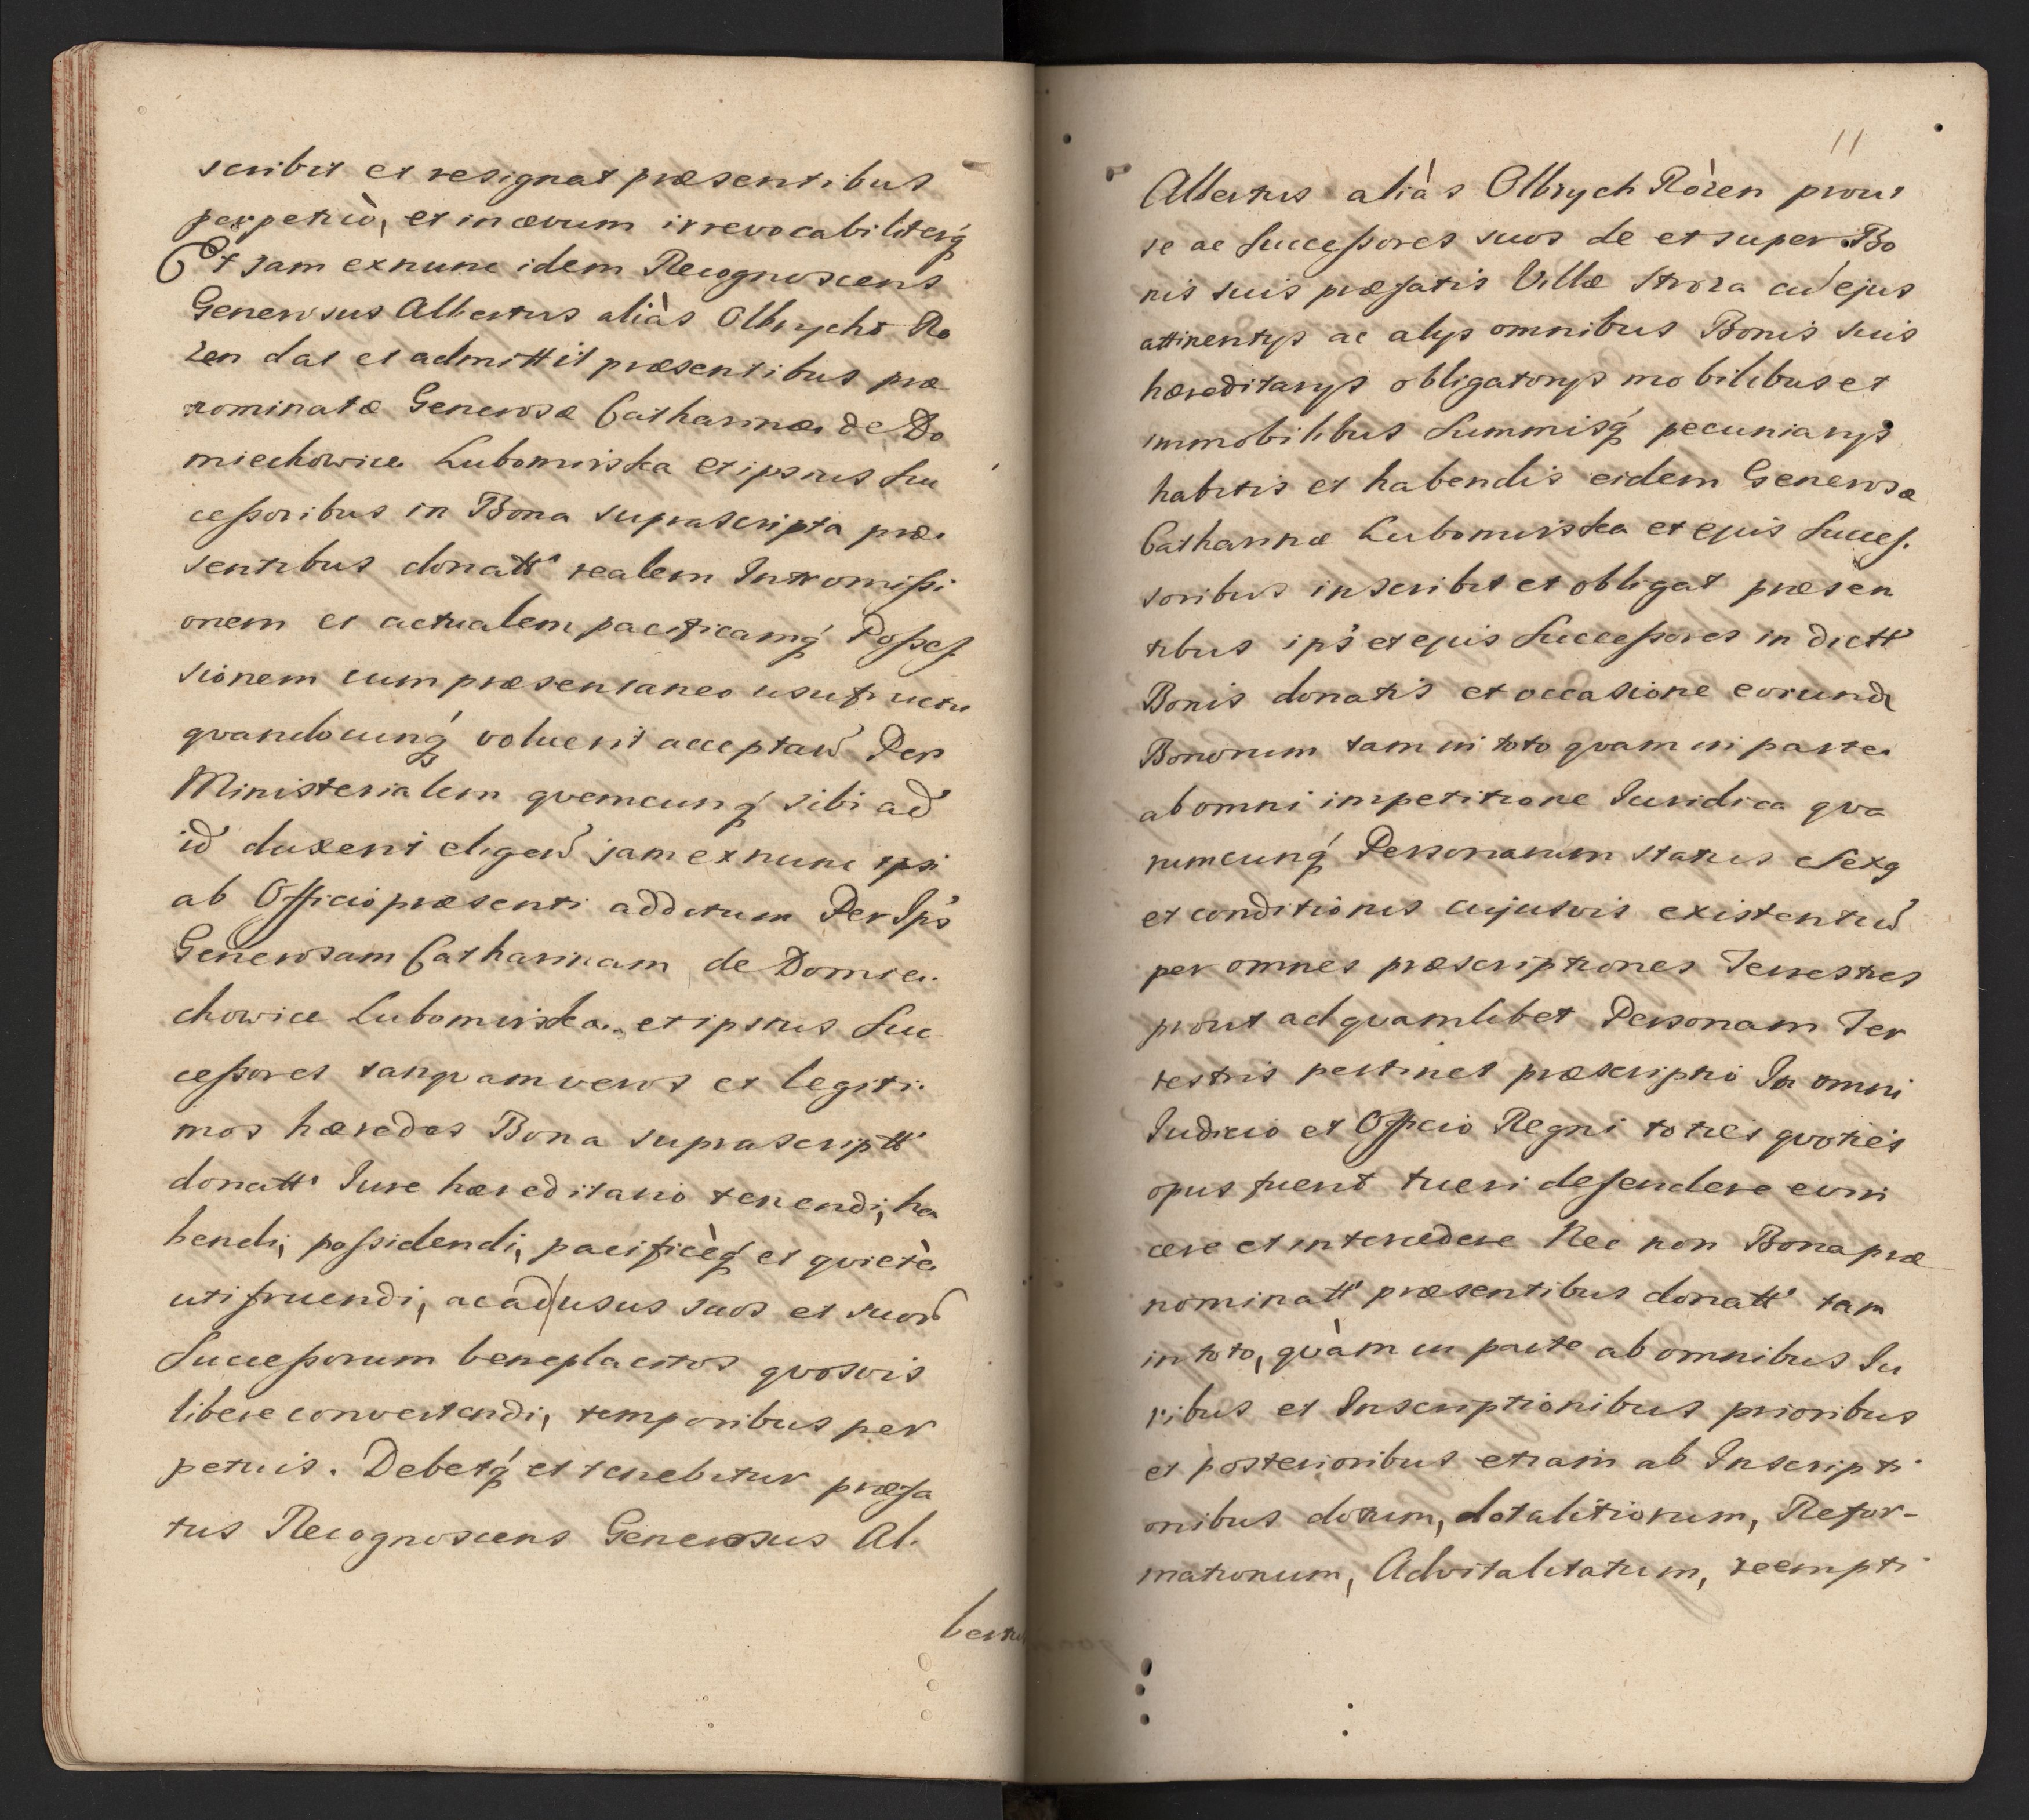 scribit et resignat præsentibus
perpetuò, et in ævum irrevocabiliterq́
Et jam ex nunc idem Recognoscens
Generosus Albertus aliàs Olbrycht Ro
zen dat et admittit præsentibus præ
nominatæ Generosæ Catharinæ de Do
miechowice Lubomirska et ipsius Suc
ceßoribus in Bona suprascripta præ
sentibus donatt' realem Intromißi
onem et actualem pacificamq́ Poßes
sionem cum præsentaneo usufructu
qvandocunq́ voluerit acceptañ Per
Ministerialem qvemcunq́ sibi ad
id duxerit eligeñ jam ex nunc ipsi
ab Officio præsenti additum Per Ips
Generosam Catharinam de Domie
chowice Lubomirska et ipsius Suc
ceßores tanqvam veros et legiti
mos hæredes Bona suprascriptt'
donatt' Jure hæreditario tenendi, ha
bendi, poßidendi, pacificèq́ et qvietè
uti fruendi, ac ad usus suos et suor
Succeßorum beneplacitos qvosvis
libere convertendi, temporibus per
petuis. Debetq́ et tenebitur præfa
tus Recognoscens Generosus Al.
bertus
11
Albertus aliàs Olbrych Ròzen prout
se ac Succeßores suos de et super Bo
nis suis præfatis Villæ Stroza cu ejus
attinentys ac alys omnibus Bonis suis
hæreditarys obligatorys mobilibus et
immobilibus Summisq́ pecuniarys
habitis et habendis eidem Generosæ
Catharinæ Lubomirska et ejus Succes.
soribus inscribit et obligat præsen
tibus ips et ejus Succeßores in dictt'
Bonis donatis et occasione eorund
Bonorum tam in toto qvam in parte
ab omni impetitione Juridica qva
rumcunq́ Personarum status Sexg
et conditionis cujusvis existentiu
per omnes præscriptiones Terrestres
prout ad qvamlibet Personam Ter
restris pertinet præscriptio In omni
Judicio et Officio Regni toties qvoties
opus fuerit tueri defendere evin
cere et intercedere Nec non Bona præ
nominatt' præsentibus donatt' tam
in toto, qvàm in parte ab omnibus Ju
ribus et Inscriptionibus prioribus
et posterioribus etiam ab Inscripti
onibus dotum, dotalitiorum, Refor-
mationum, Advitalitatum, reempti